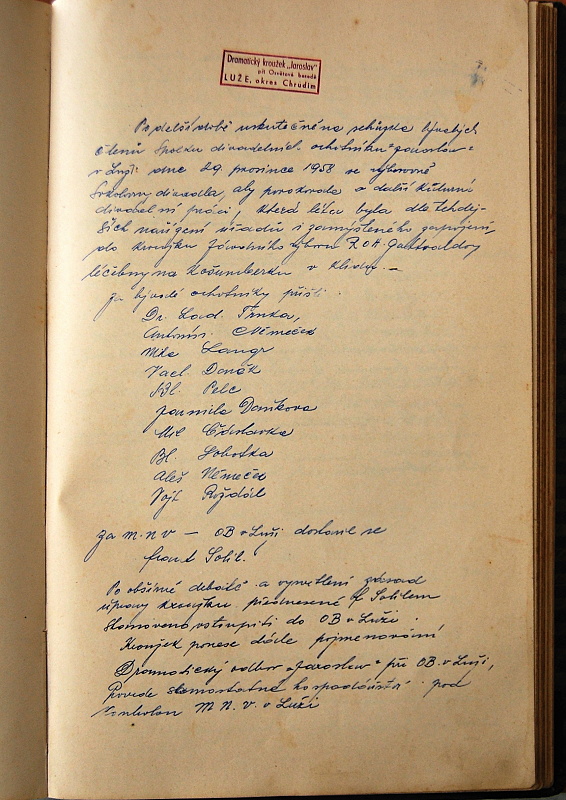 Dramatický kroužek „Jaroslav"
při Osvětové besedě
LUŽE, okres Chrudim
Po delší době uskutečněna schůzka bývalých
členů Spolku divadelních ochotníků „Jaroslav"
v Luži dne 29 prosince 1958 ve
divadla, aby porokovala o další kulturní
divadelní práci, která léta byla dle tehdej-
ších nařízení úřadů i zamýšleného zapojení
do kroužku Závodního výboru R O H. Gottwaldovy
léčebny na Košumberku v klidu. —
za bývalé ochotníky přišli:
Dr. Lad. Trnka,
Antonín. Němeček
Mila Langr
Vacl. Daněk
Bl. Pelc
Jarmila Daňkova
Mil
Bl. Sobotka
Aleš Němeček
Vojt Roždál
za m.n.v — OB v Luži dostavil se
Solil.
Po obšírné debatě a vysvětlení zásad
úpravy kroužku přednesené Solilem
vstoupiti do OB v Luži.
Kroužek ponese dále pojmenování
Dramatický odbor „Jaroslav" při OB v Luži,
Povede samostatné hospodářství pod
kontrolou M N. V. v Luži